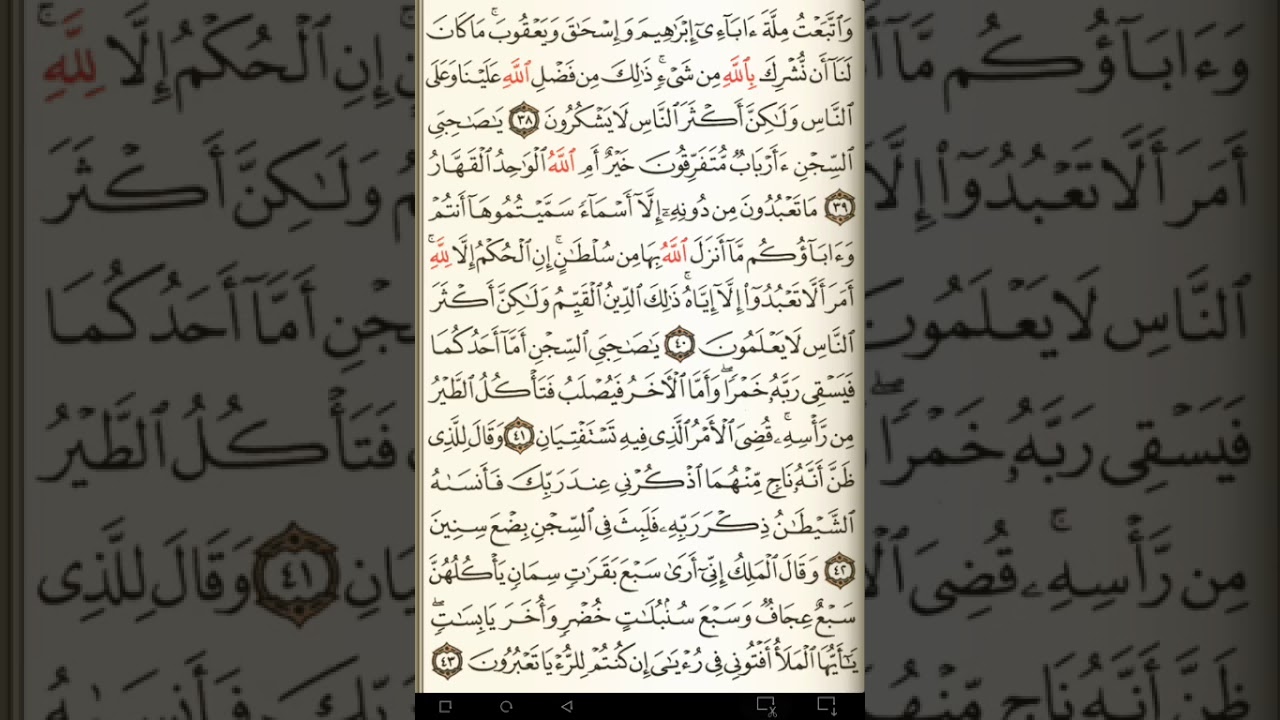 وَٱتَّبَعۡتُ مِلَّةَ ءَابَآءِيٓ إِبۡرَٰهِيمَ وَإِسۡحَٰقَ وَيَعۡقُوبَۚ مَا كَانَ
لَنَآ أَن نُّشۡرِكَ بِٱللَّهِ مِن شَيۡءٖۚ ذَٰلِكَ مِن فَضۡلِ ٱللَّهِ عَلَيۡنَا وَعَلَى
ٱلنَّاسِ وَلَٰكِنَّ أَكۡثَرَ ٱلنَّاسِ لَا يَشۡكُرُونَ ٣٨ يَٰصَٰحِبَيِ
ٱلسِّجۡنِ ءَأَرۡبَابٞ مُّتَفَرِّقُونَ خَيۡرٌ أَمِ ٱللَّهُ ٱلۡوَٰحِدُ ٱلۡقَهَّارُ
٣٩ مَا تَعۡبُدُونَ مِن دُونِهِۦٓ إِلَّآ أَسۡمَآءٗ سَمَّيۡتُمُوهَآ أَنتُمۡ
وَءَابَآؤُكُم مَّآ أَنزَلَ ٱللَّهُ بِهَا مِن سُلۡطَٰنٍۚ إِنِ ٱلۡحُكۡمُ إِلَّا لِلَّهِۚ
أَمَرَ أَلَّا تَعۡبُدُوٓاْ إِلَّآ إِيَّاهُۚ ذَٰلِكَ ٱلدِّينُ ٱلۡقَيِّمُ وَلَٰكِنَّ أَكۡثَرَ
ٱلنَّاسِ لَا يَعۡلَمُونَ ٤٠ يَٰصَٰحِبَيِ ٱلسِّجۡنِ أَمَّآ أَحَدُكُمَا
فَيَسۡقِي رَبَّهُۥ خَمۡرٗاۖ وَأَمَّا ٱلۡأٓخَرُ فَيُصۡلَبُ فَتَأۡكُلُ ٱلطَّيۡرُ
مِن رَّأۡسِهِۦۚ قُضِيَ ٱلۡأَمۡرُ ٱلَّذِي فِيهِ تَسۡتَفۡتِيَانِ ٤١ وَقَالَ لِلَّذِي
ظَنَّ أَنَّهُۥ نَاجٖ مِّنۡهُمَا ٱذۡكُرۡنِي عِندَ رَبِّكَ فَأَنسَىٰهُ
ٱلشَّيۡطَٰنُ ذِكۡرَ رَبِّهِۦ فَلَبِثَ فِي ٱلسِّجۡنِ بِضۡعَ سِنِينَ
٤٢ وَقَالَ ٱلۡمَلِكُ إِنِّيٓ أَرَىٰ سَبۡعَ بَقَرَٰتٖ سِمَانٖ يَأۡكُلُهُنَّ
سَبۡعٌ عِجَافٞ وَسَبۡعَ سُنۢبُلَٰتٍ خُضۡرٖ وَأُخَرَ يَابِسَٰتٖۖ
يَٰٓأَيُّهَا ٱلۡمَلَأُ أَفۡتُونِي فِي رُءۡيَٰيَ إِن كُنتُمۡ لِلرُّءۡيَا تَعۡبُرُونَ ٤٣